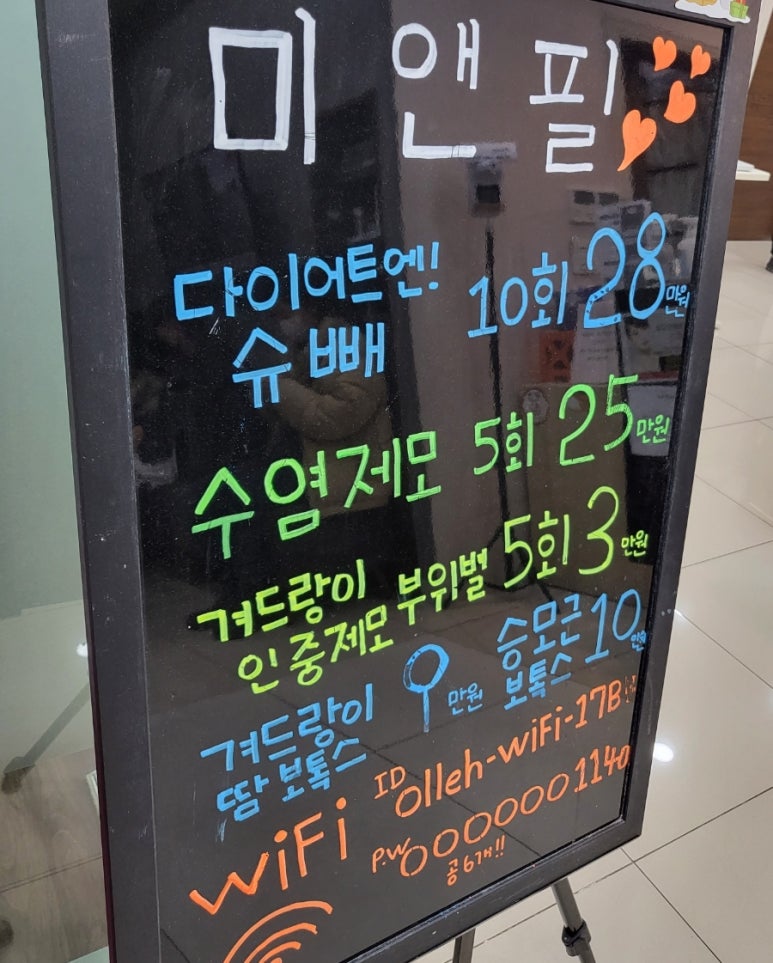 미앤필
다이어트엔! 10회 28만원
슈빼
수염제모 5회 25만원
겨드랑이 부위별 5회 3만원
인중제모
겨드랑이 9만원 승모근 10만원
땀보톡스 보톡스
WiFi ID olleh-WiFi-17B
P.W 0000001140
공6개!!